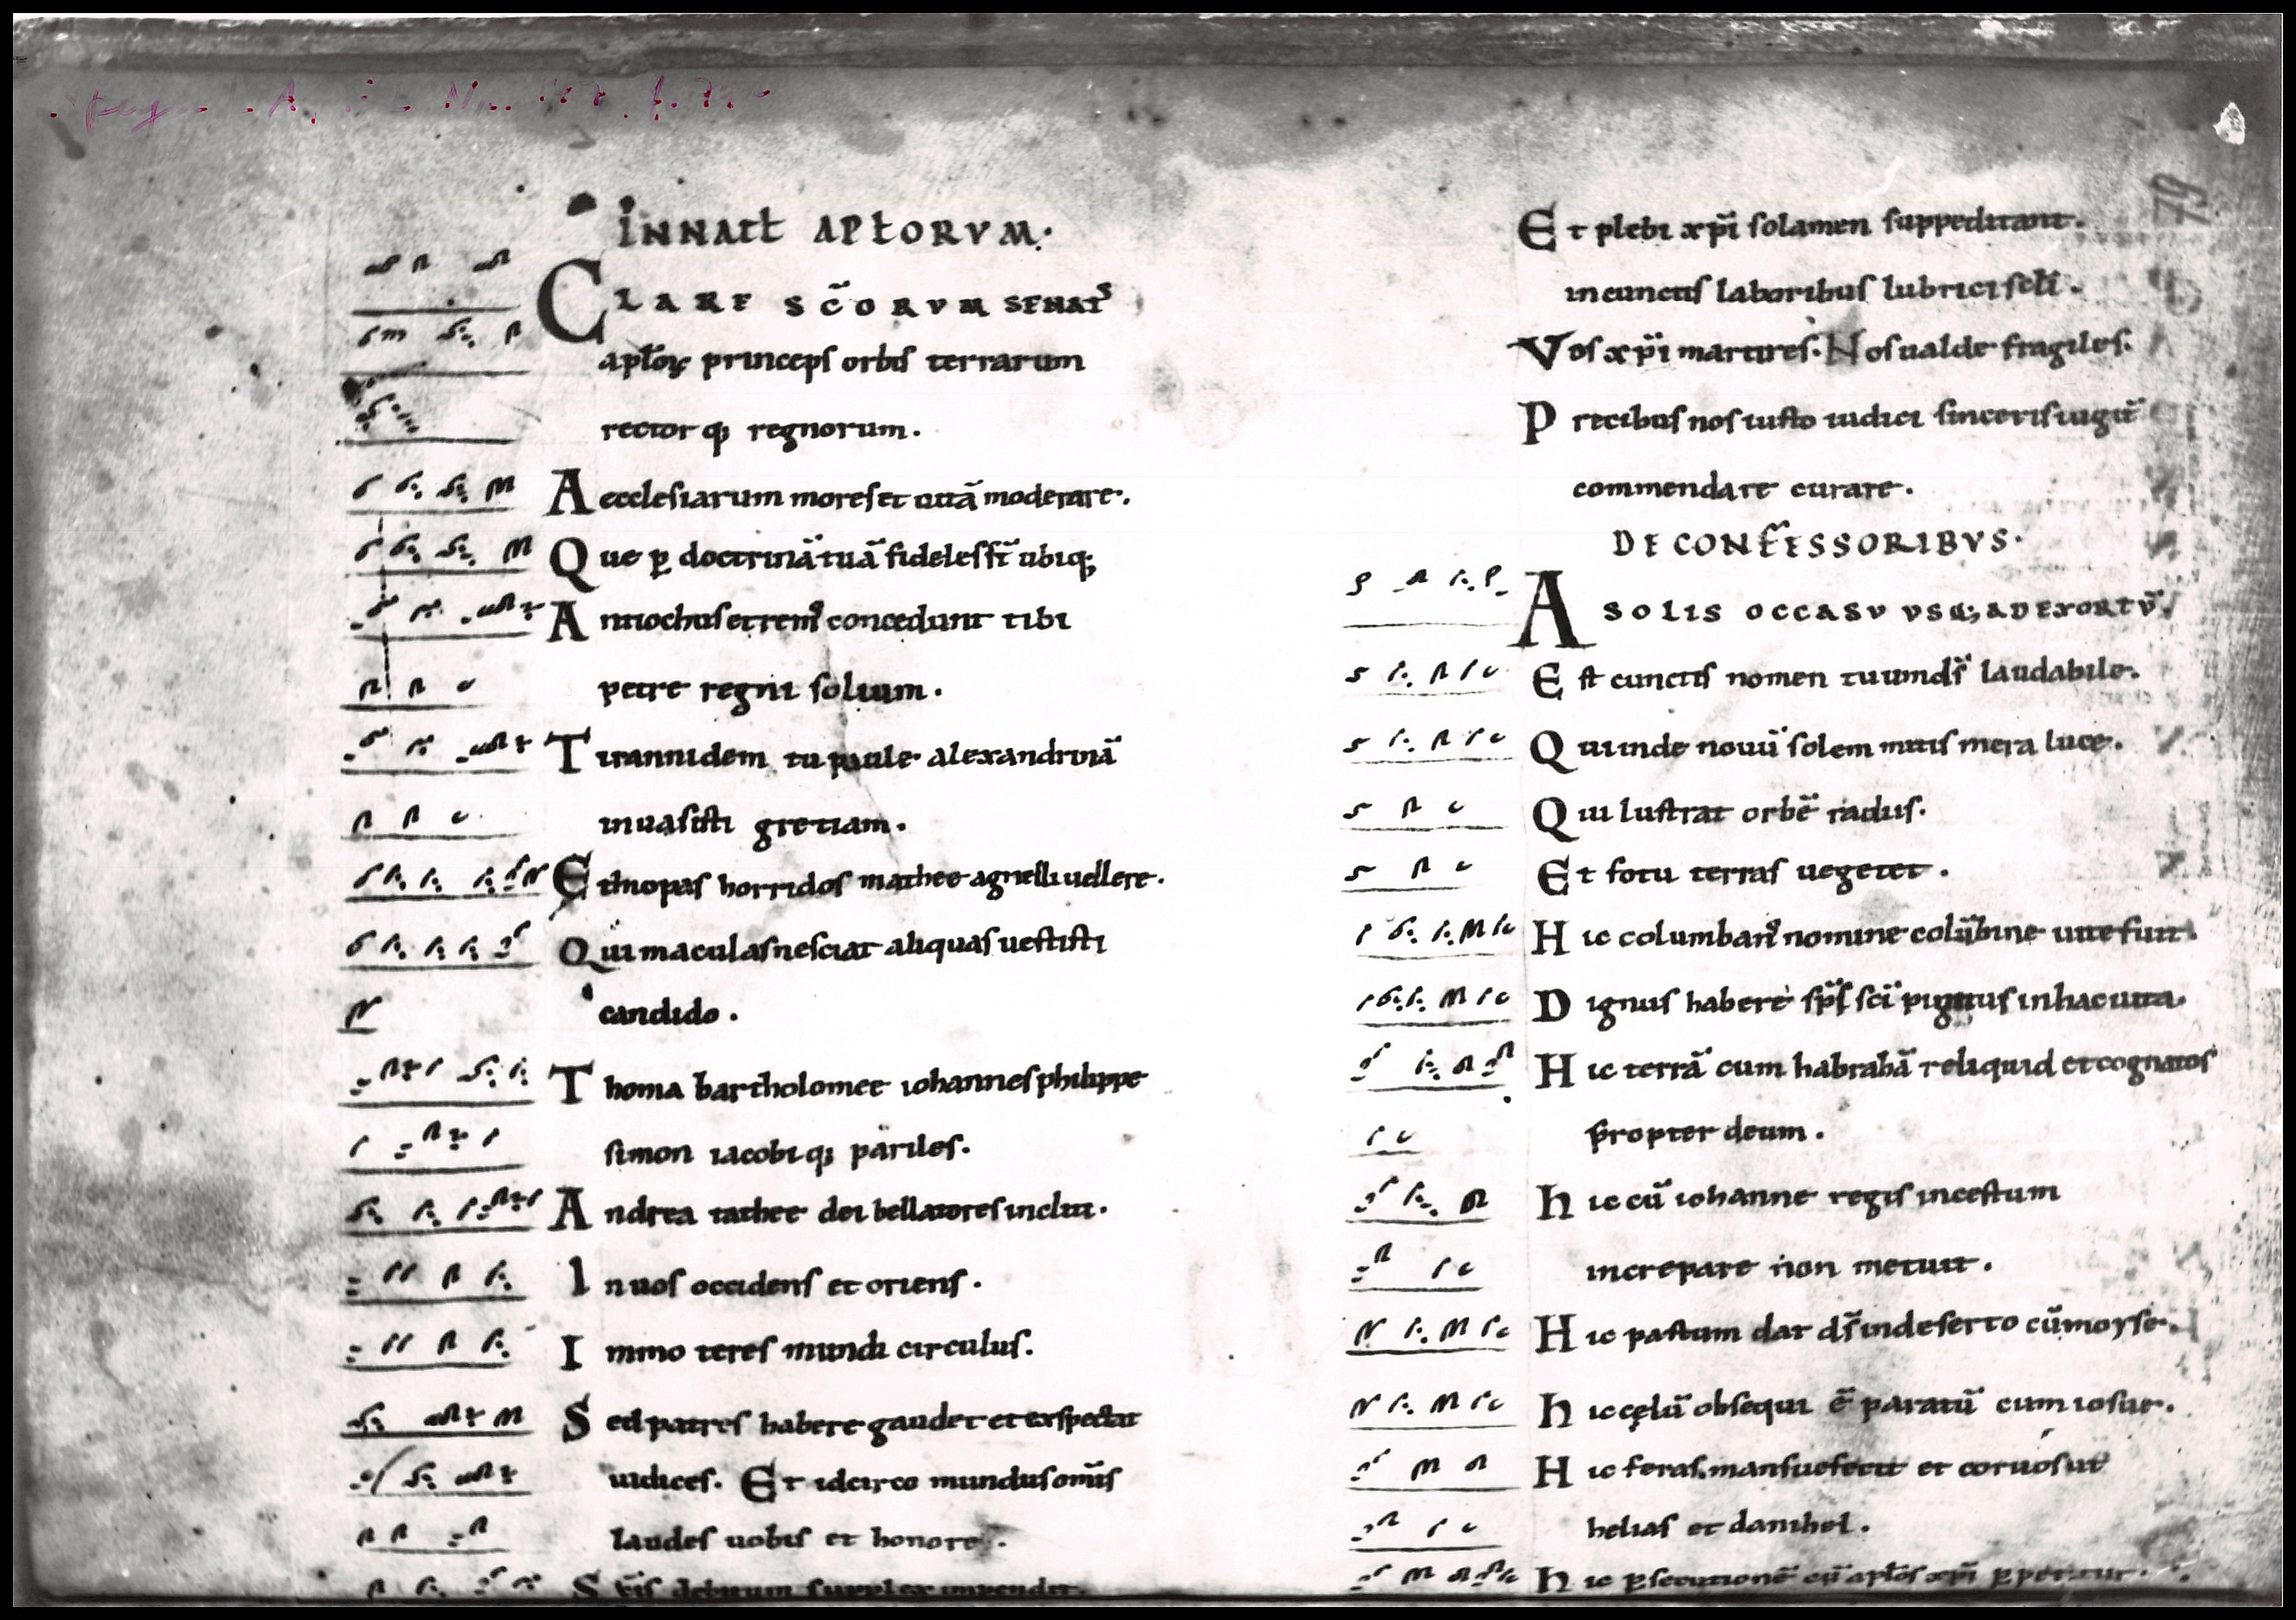 INNATł APłORVM·
CLARE SC̄ORVM SENAT᷒
apłoꝝ princeps orbis terrarum
rector qꝫ regnorum.
A ecclesiarum mores et uitā moderare.
Que ꝑ doctrinā tuā fideles st̄ ubiqꝫ
Antiochus et remꝰ concedunt tibi
petre regni solium.
Tirannidem tu paule alexandrinā
inuasisti gretiam.
Ethiopas horridos mathee agnelli uellere.
Qui maculas nesciat aliquas uestisti
candido.
Thoma bartholomee iohannes philippe
simon iacobi qꝫ pariles.
Andrea tathee dei bellatores incliti.
In uos occidens et oriens.
Immo teres mundi circulus.
Sed patres habere gaudet et exspectat
iudices. Et idcirco mundus om̄is
laudes uobis et honore.
debitum supplex impendit.
Et plebi xp̄i solamen suppeditant.
in cunctis laboribus lubrici scłi.
Vos xp̄i martires. Nos ualde fragiles.
Precibus nos iusto iudici sinceris iugit̄
commendare curare.
DE CONFESSORIBVS·
A SOLIS OCCASV VSQꝫ AD EXORTV̄.
Est cunctis nomen tuum ds̄ laudabile.
Qui inde nouū solem mittis mera luce.
Qui lustrat orbē radiis.
Et fotu terras uegetet.
Hic columbanꝰ nomine colūbine uite fuit.
Dignus habere sp̄s sc̄i pignus in hac uita.
Hic terrā cum habrahā reliquid et cognatos
propter deum.
Hic cū iohanne regis incestum
increpare non metuit.
Hic pastum dat ds̄ in deserto cū moyse.
Hic cęlū obsequi ē paratū cum iosue.
Hic feras mansuefecit et coruos ut
helias et danihel.
Hic ꝑsecutionē cū apłos xp̄i ꝑpetitur.
79